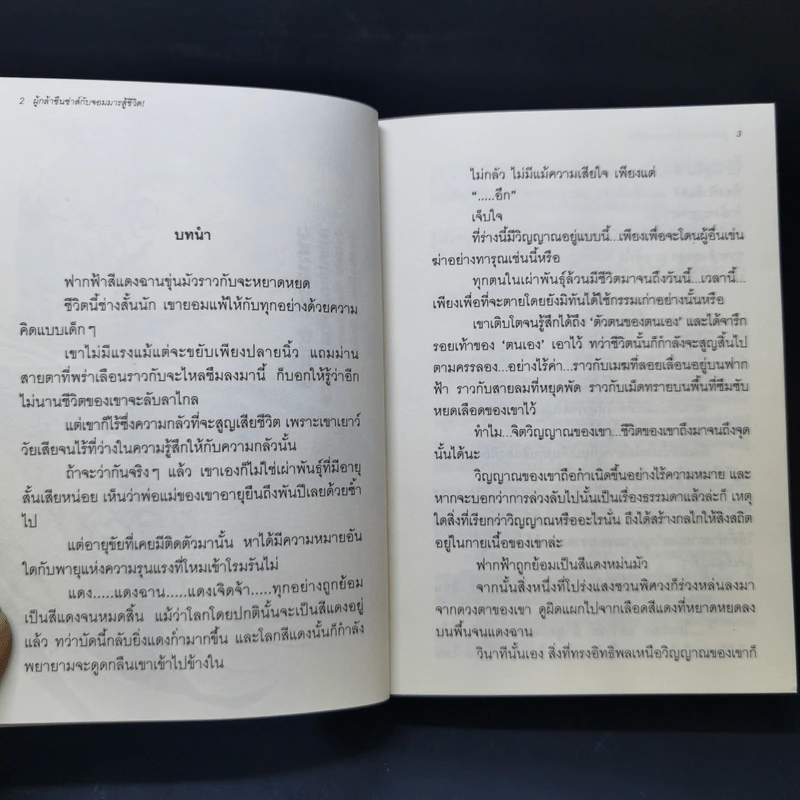 2 ผู้กล้าซึนซ่าส์กับจอมมารสู้ชีวิต!
บทนำ
ฟากฟ้าสีแดงฉานขุ่นมัวราวกับจะหยาดหยด
ชีวิตนี้ช่างสั้นนัก เขายอมแพ้ให้กับทุกอย่างด้วยความ
คิดแบบเด็กๆ
เขาไม่มีแรงแม้แต่จะขยับเพียงปลายนิ้ว แถมม่าน
สายตาที่พร่าเลือนราวกับจะไหลซึมลงมานี้ ก็บอกให้รู้ว่าอีก
ไม่นานชีวิตของเขาจะลับลาไกล
แต่เขาก็ไร้ซึ่งความกลัวที่จะสูญเสียชีวิต เพราะเขาเยาว์
วัยเสียจนไร้ที่ว่างในความรู้สึกให้กับความกลัวนั้น
ถ้าจะว่ากันจริงๆ แล้ว เขาเองก็ไม่ใช่เผ่าพันธุ์ที่มีอายุ
สั้นเสียหน่อย เห็นว่าพ่อแม่ของเขาอายุยืนถึงพันปีเลยด้วยซ้ำ
ไป
แต่อายุขัยที่เคยมีติดตัวมานั้น หาได้มีความหมายอัน
ใดกับพายุแห่งความรุนแรงที่โหมเข้าโรมรันไม่
แดง.....แดงฉาน.....แดงเจิดจ้า.....ทุกอย่างถูกย้อม
เป็นสีแดงจนหมดสิ้น แม้ว่าโลกโดยปกตินั้นจะเป็นสีแดงอยู่
แล้ว ทว่าบัดนี้กลับยิ่งแดงก่ำมากขึ้น และโลกสีแดงนั้นก็กำลัง
พยายามจะดูดกลืนเขาเข้าไปข้างใน
3
ไม่กลัว ไม่มีแม้ความเสียใจ เพียงแต่
“.....อึก”
เจ็บใจ
ที่ร่างนี้มีวิญญาณอยู่แบบนี้...เพียงเพื่อจะโดนผู้อื่นเข่น
ฆ่าอย่างทารุณเช่นนี้หรือ
ทุกตนในเผ่าพันธุ์ล้วนมีชีวิตมาจนถึงวันนี้...เวลานี้...
เพียงเพื่อที่จะตายโดยยังมิทันได้ใช้กรรมเก่าอย่างนั้นหรือ
เขาเติบโตจนรู้สึกได้ถึง ‘ตัวตนของตนเอง’ และได้จารึก
รอยเท้าของ ‘ตนเอง’ เอาไว้ ทว่าชีวิตนั้นก็กำลังจะสูญสิ้นไป
ตามครรลอง...อย่างไร้ค่า... ราวกับเมฆที่ลอยเลื่อนอยู่บนฟาก
ฟ้า ราวกับสายลมที่หยุดพัด ราวกับเม็ดทรายบนพื้นที่ซึมซับ
หยดเลือดของเขาไว้
ทำไม...จิตวิญญาณของเขา...ชีวิตของเขาถึงมาจนถึงจุด
นั้นได้นะ
วิญญาณของเขาถือกำเนิดขึ้นอย่างไร้ความหมาย และ
หากจะบอกว่าการล่วงลับไปนั้นเป็นเรื่องธรรมดาแล้วล่ะก็ เหตุ
ใดสิ่งที่เรียกว่าวิญญาณหรืออะไรนั่น ถึงได้สร้างกลไกให้สิงสถิต
อยู่ในกายเนื้อของเขาล่ะ
ฟากฟ้าถูกย้อมเป็นสีแดงหม่นมัว
จากนั้นสิ่งหนึ่งที่โปร่งแสงชวนพิศวงก็ร่วงหล่นลงมา
จากดวงตาของเขา ดูผิดแผกไปจากเลือดสีแดงที่หยาดหยดลง
บนพื้นจนแดงฉาน
วินาทีนั้นเอง สิ่งที่ทรงอิทธิพลเหนือวิญญาณของเขาก็